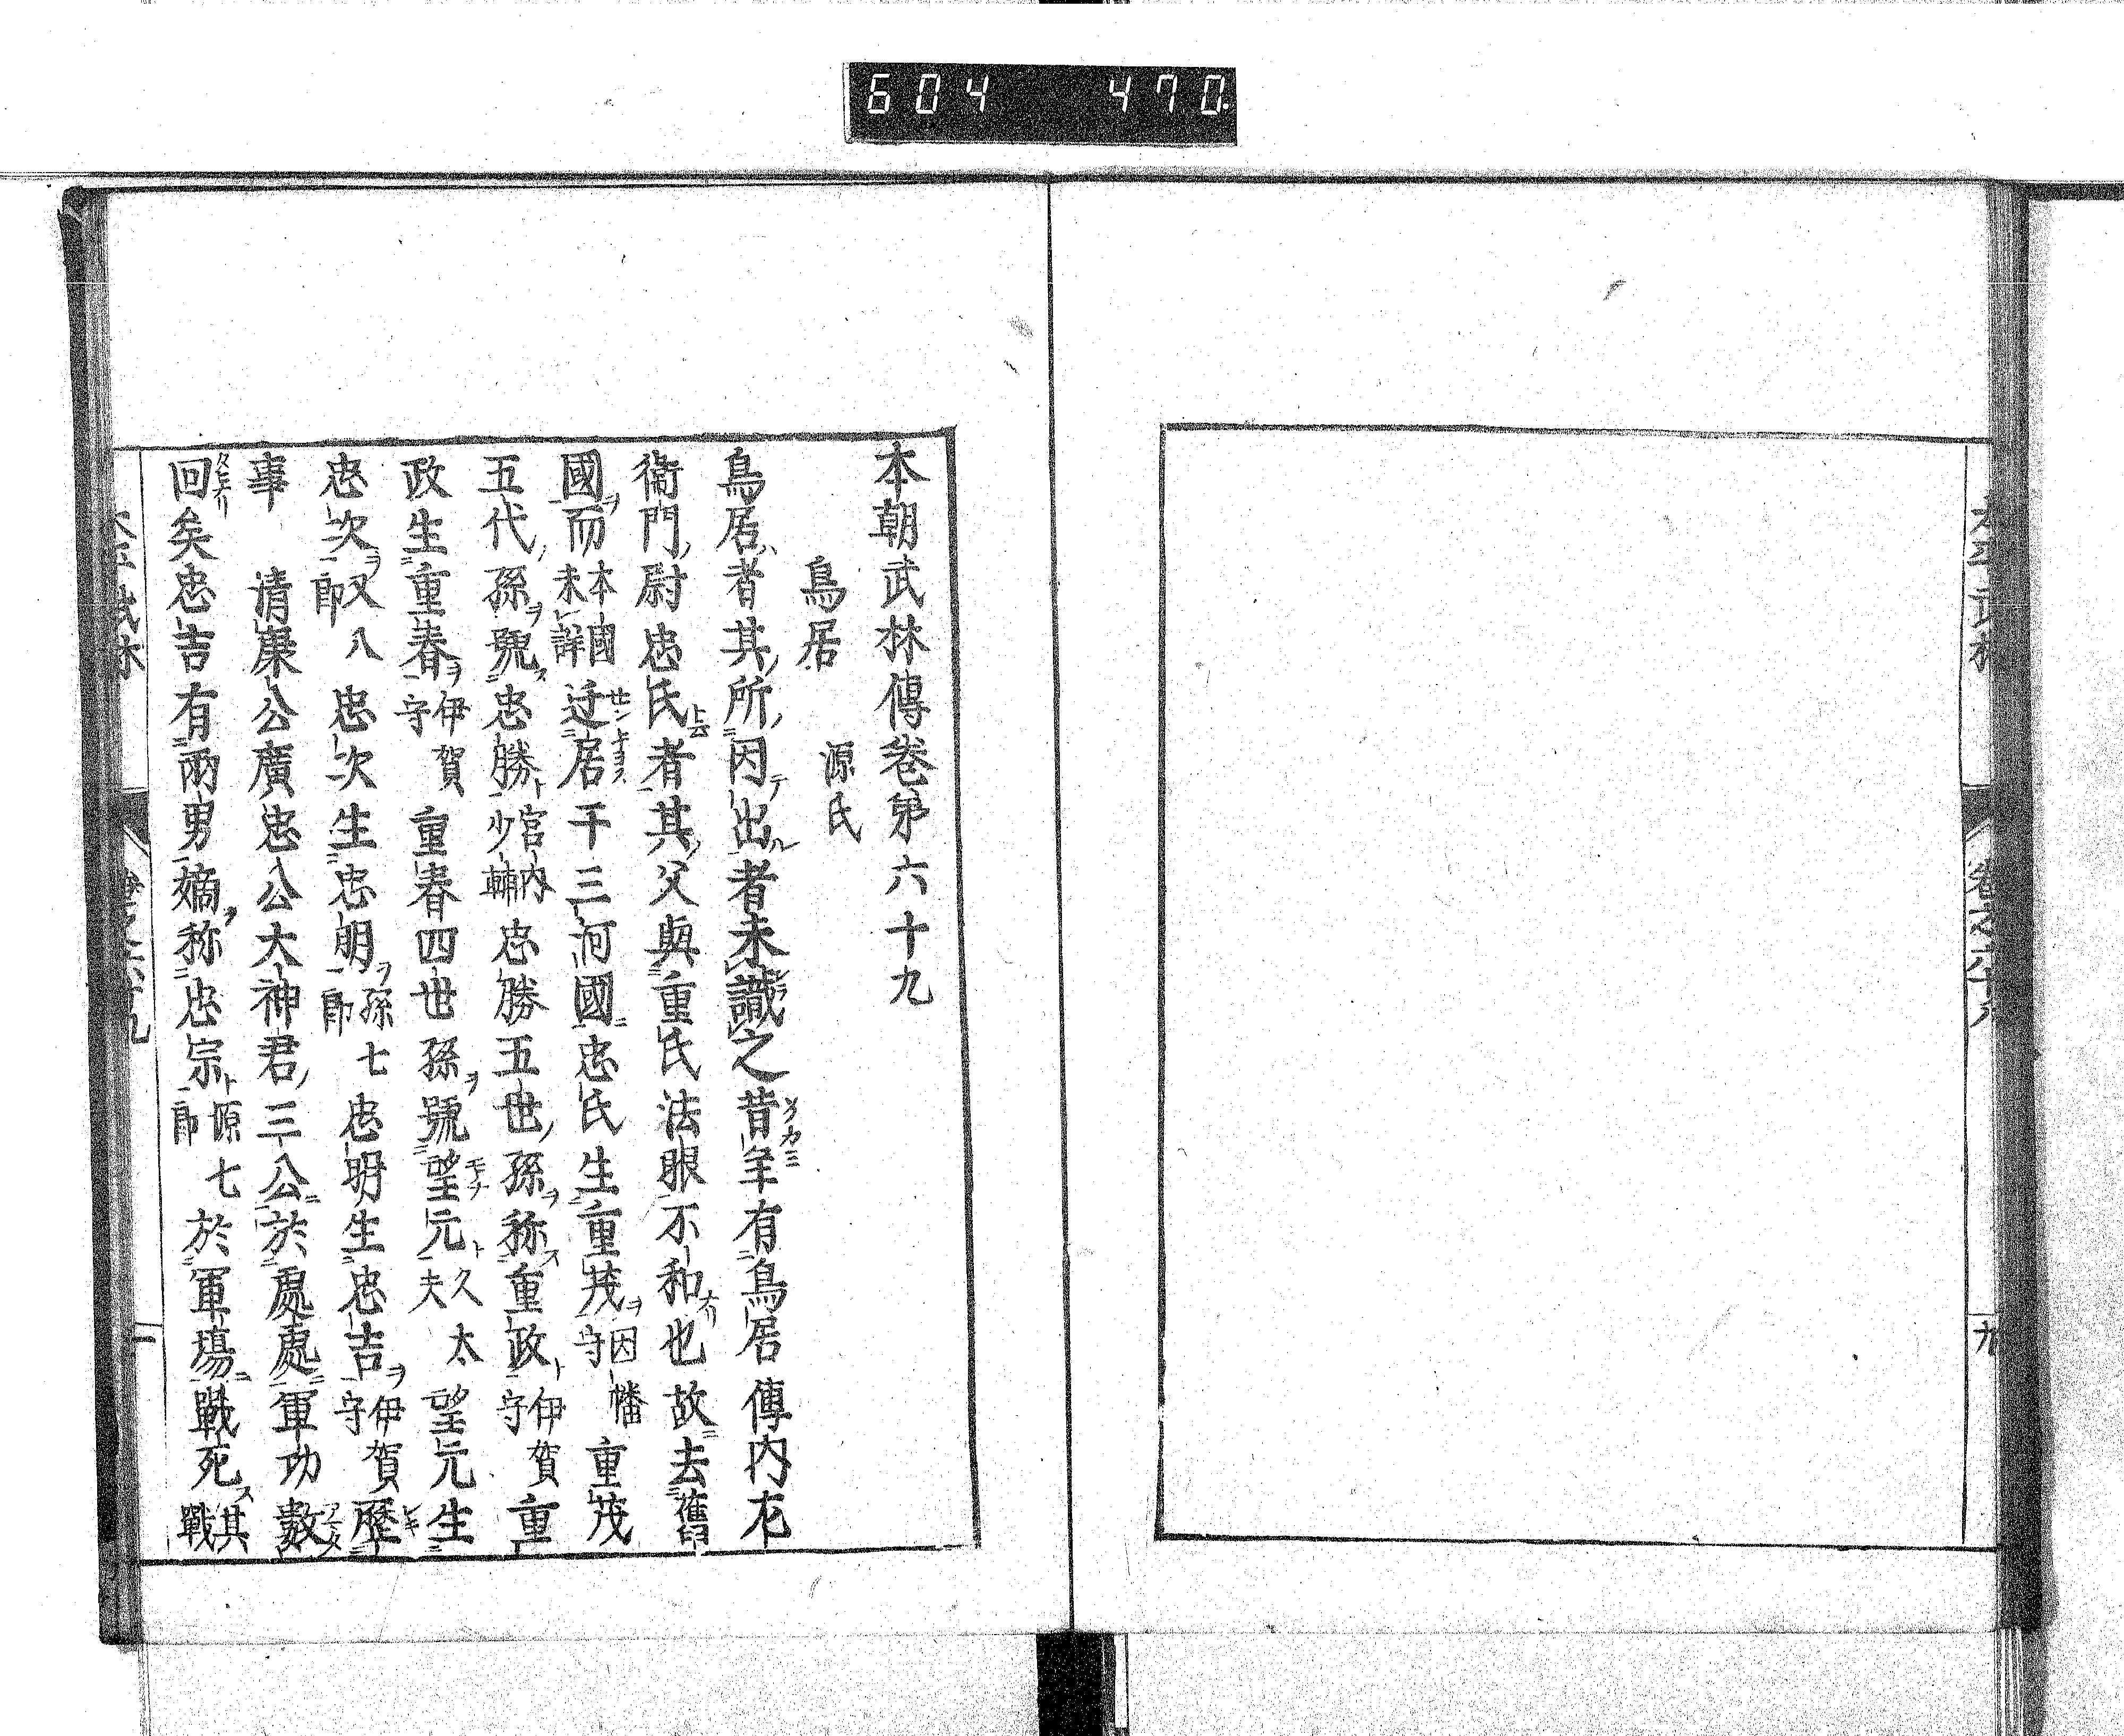 604 470
本朝武林傳卷第六十九
鳥居 源氏
鳥居ハ者其ノ所ノ因テ出ル者未識之昔年有鳥居傳内左
衞門ノ尉忠氏ト云者其ノ父與重氏法眼不和ナリ也故ニ去舊
國ヲ而本國未詳迁居于三河國ニ忠氏生重茂ヲ因幡守重茂
五代ノ孫ヲ號ス忠勝ト宮内少輔忠勝五世ノ孫ヲ称ス重政ト伊賀守重
政生重春ヲ伊賀守重春四世孫ヲ號望元ト久太夫望元生
忠次ヲ又八郎忠次生忠明ヲ孫七郎忠明生忠吉ヲ伊賀守歷
事 清康公廣忠公大神君ノ三公ニ於處處ニ軍功數
回矣忠吉有兩男嫡称忠宗ト源七郎於軍塲ニ戰死ス其戰
卷之六十九
一
九